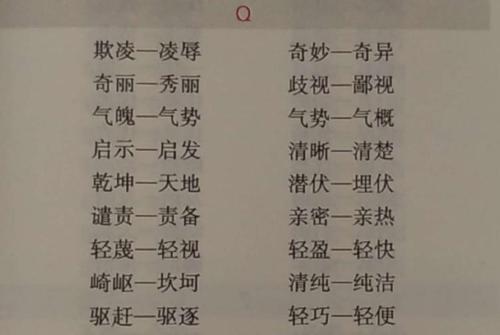 Q
欺凌—凌辱 奇妙—奇异
奇丽—秀丽 歧视—鄙视
气魄—气势 气势—气概
启示—启发 清晰—清楚
乾坤—天地 潜伏—埋伏
谴责—责备 亲密—亲热
轻蔑—轻视 轻盈—轻快
崎岖—坎坷 清纯—纯洁
驱赶—驱逐 轻巧—轻便